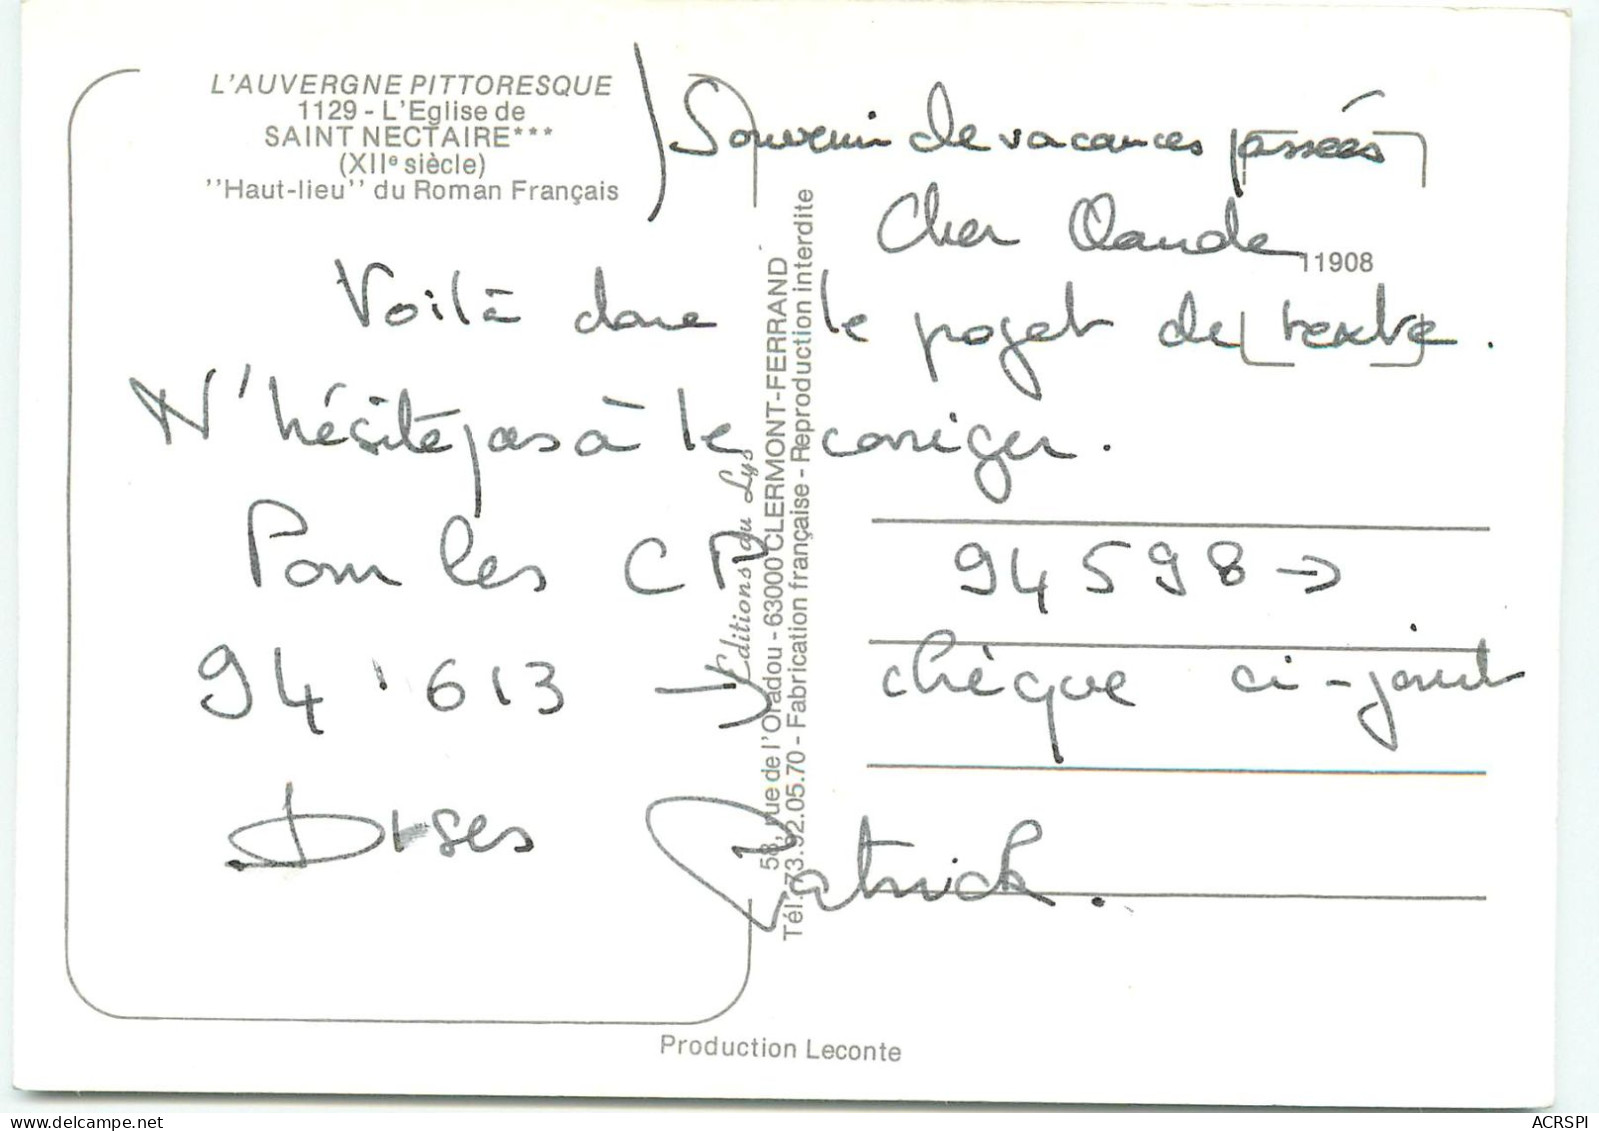 L'AUVERGNE PITTORESQUE
1129 - L'Eglise de
SAINT NECTAIRE***
(XIIe siècle)
''Haut-lieu'' du Roman Français
Souvenir de vacances passées
Cher Claude
11908
Voilà donc le projet de texte.
N'hésite pas à le corriger.
Pour les CP 94 598 →
94 . 613 → chèque ci-joint
Patrick.
Editions du Lys
58, rue de l'Oradou - 63000 CLERMONT-FERRAND
Tél. 73.92.05.70 - Fabrication française - Reproduction interdite
Production Leconte
ACRSPI